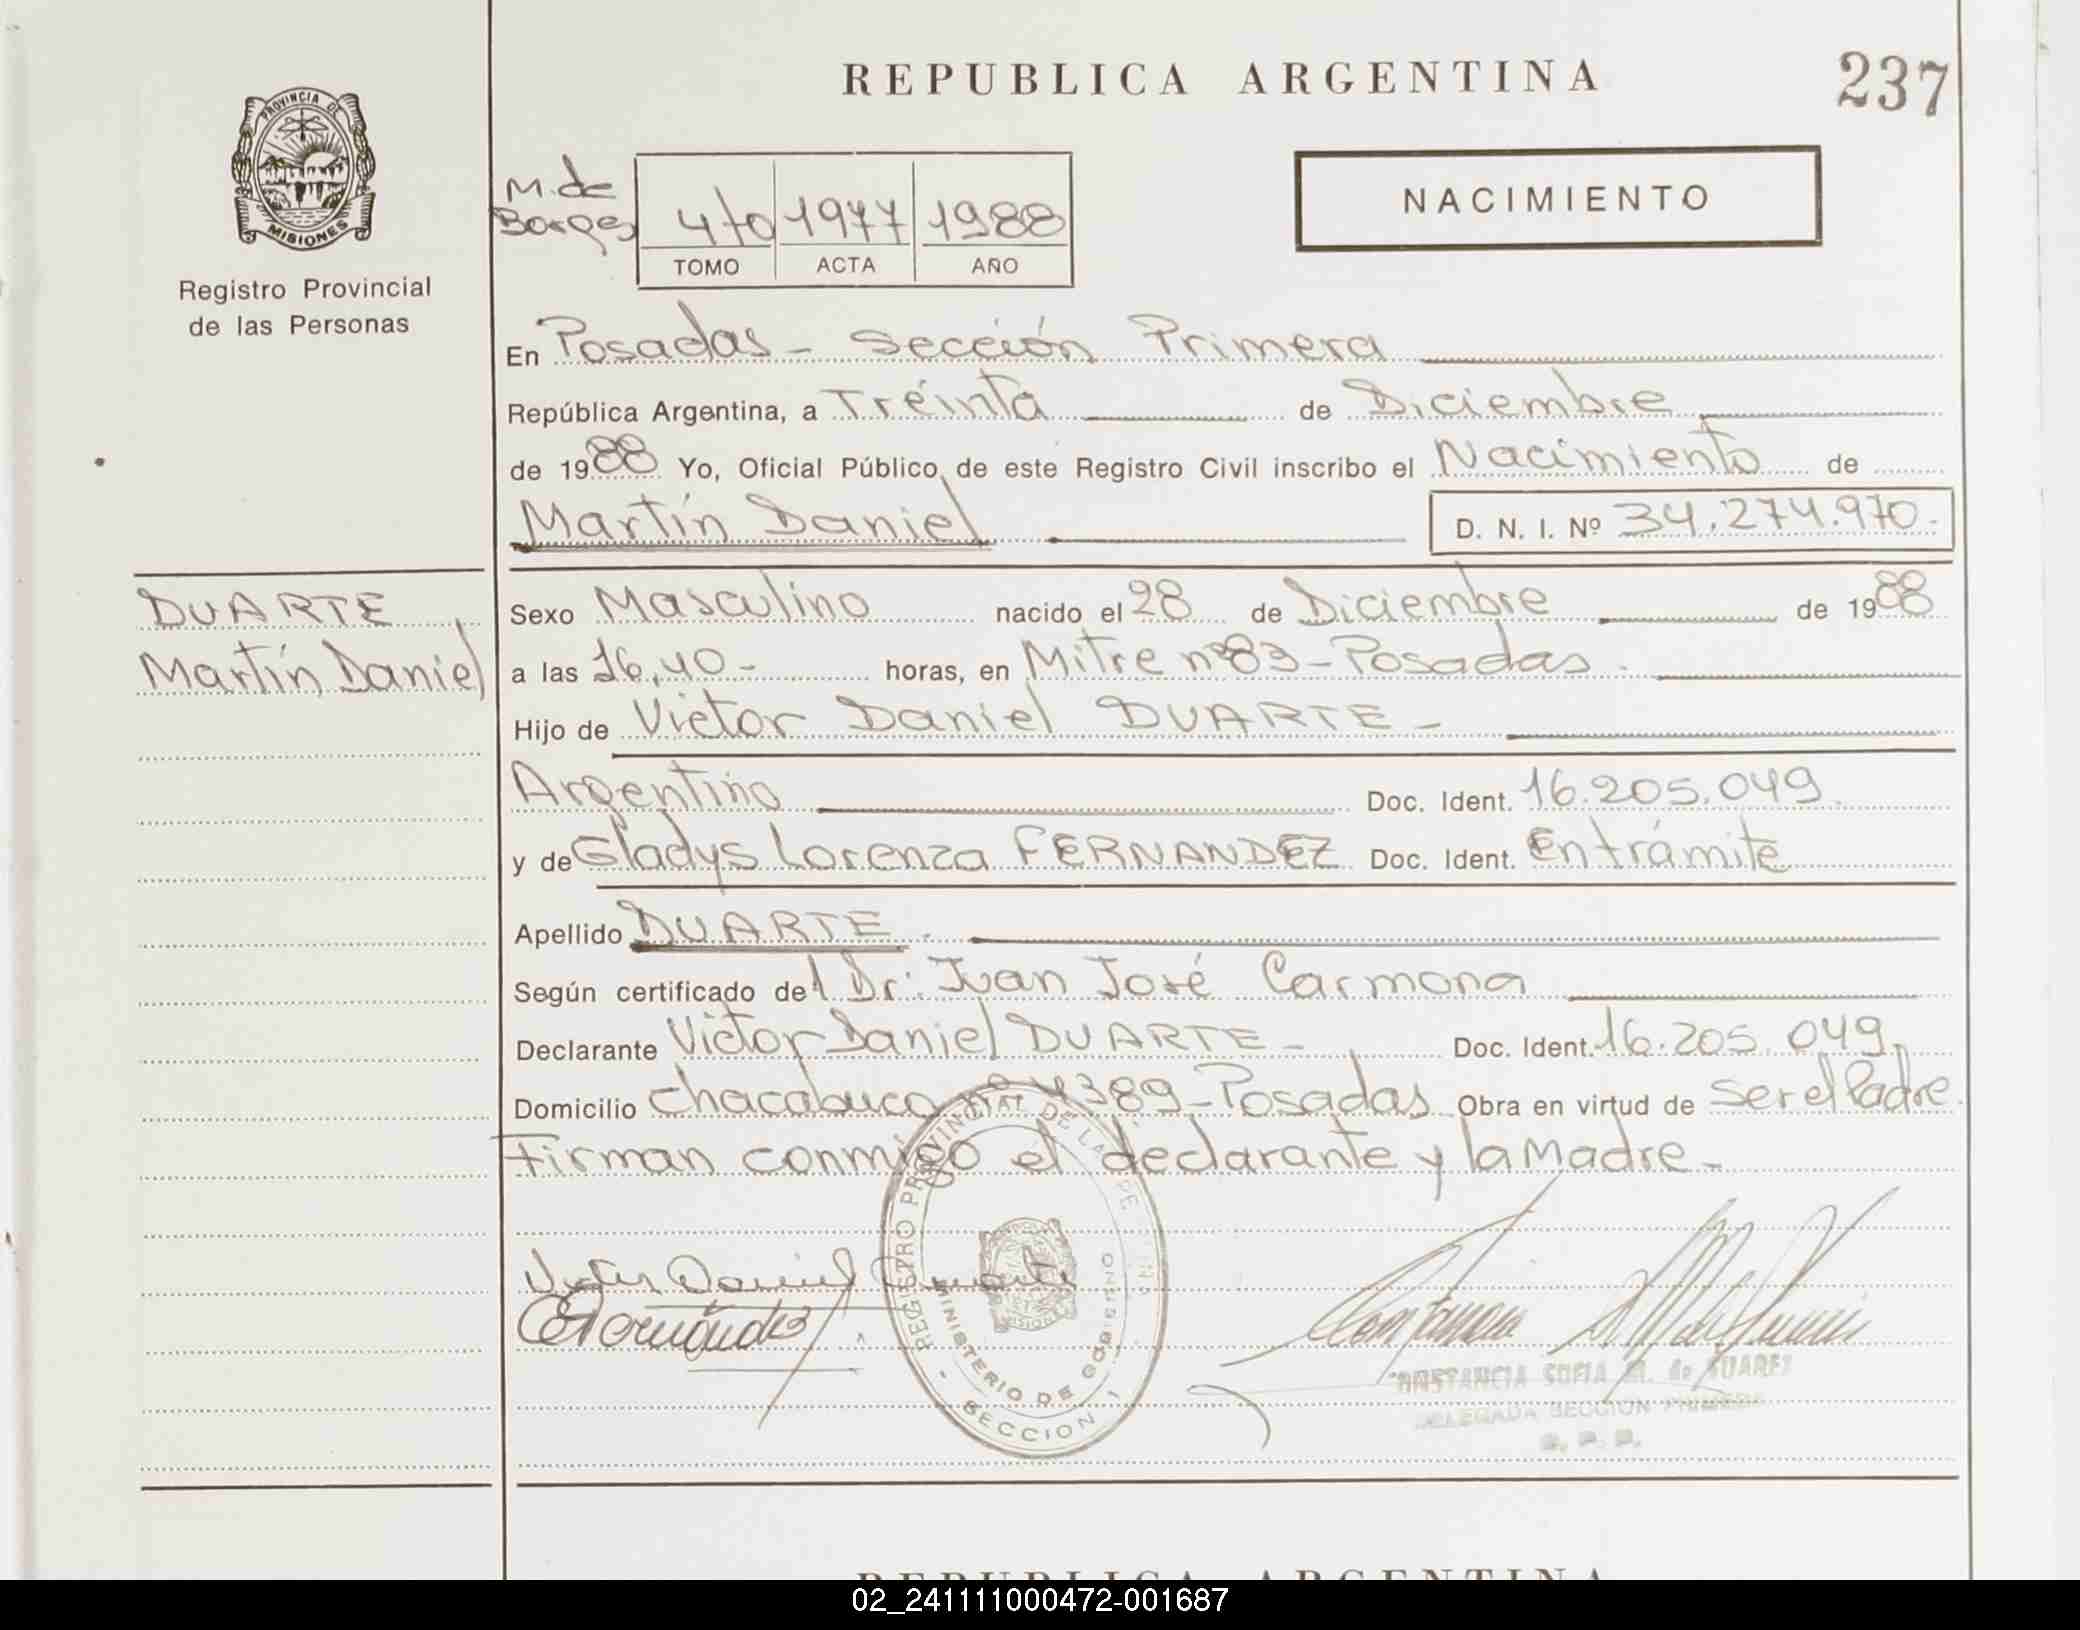 REPUBLICA ARGENTINA
237
PROVINCIA DE
MISIONES
Registro Provincial
de las Personas
M. de
Borges
4to 1977 1988
TOMO ACTA AÑO
NACIMIENTO
En Posadas - Sección Primera
República Argentina, a Treinta de Diciembre
de 1988 Yo, Oficial Público de este Registro Civil inscribo el Nacimiento de
Martín Daniel
D. N. I. Nº 34.274.970.-
DUARTE
Martín Daniel
Sexo Masculino nacido el 28 de Diciembre de 1988
a las 16,40- horas, en Mitre nº83-Posadas.
Hijo de Victor Daniel DUARTE-
Argentino Doc. Ident. 16.205.049.
y de Gladys Lorenza FERNANDEZ Doc. Ident. En trámite
Apellido DUARTE.
Según certificado del Dr. Juan José Carmona
Declarante Victor Daniel DUARTE- Doc. Ident. 16.205.049.
Domicilio Chacabuco nº 4389-Posadas Obra en virtud de ser el Padre.
Firman conmigo el declarante y la Madre-
Victor Daniel Duarte
REGISTRO PROVINCIAL DE LAS PE
MINISTERIO DE GOBIERNO
SECCION 1
CONSTANCIA SOFIA M. de SUAREZ
DELEGADA SECCION PRIMERA
R. P. P.
REPUBLICA ARGENTINA
02_241111000472-001687